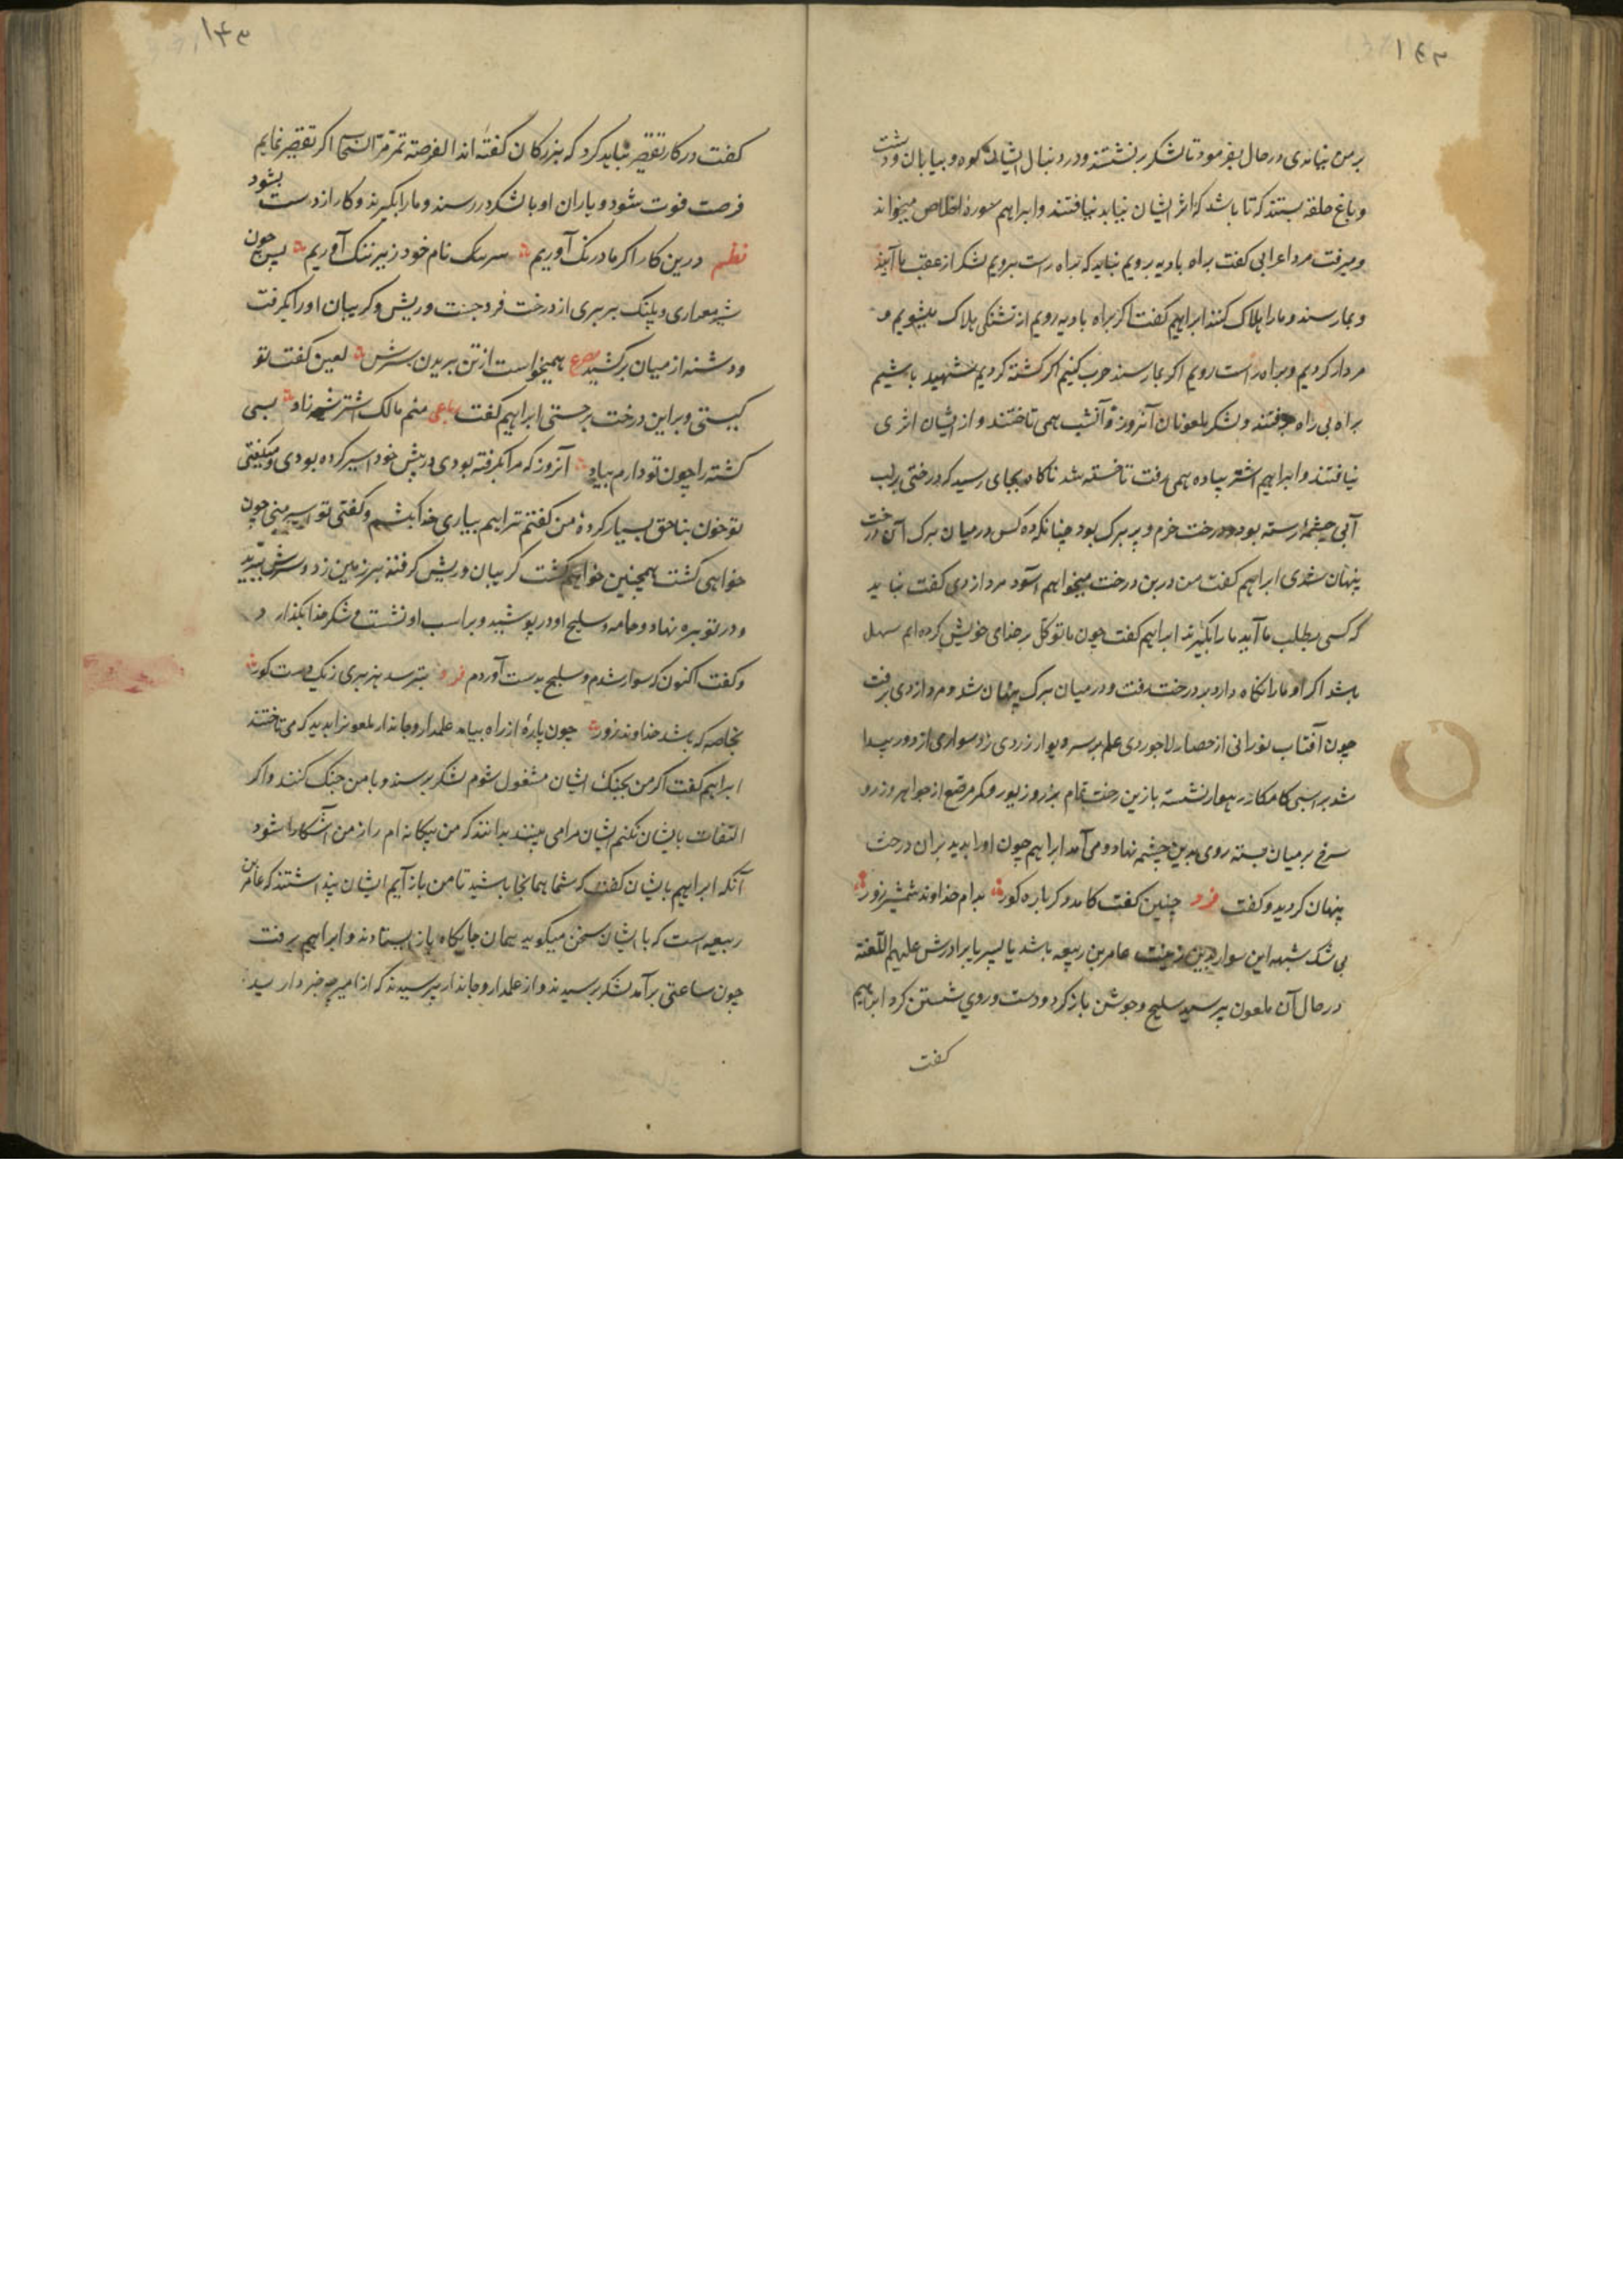 ۱۴۳
بر من نیاندی در حال بفرمود تا لشکر بنشستند و در دنبال ایشان کوه و بیابان و دشت
و باغ حلقه بستند که تا باشد که اثر ایشان بیابد نیافتند و ابراهیم سورهٔ اخلاص میخواند
و میرفت مرد اعرابی کفت براه بادیه برویم نباید که براه راست برویم لشکر از عقب ما آیند
و بمارسند و مارا هلاک کنند ابراهیم کفت اکر براه بادیه رویم از تشنکی هلاک میشویم و
مردار کردیم و براه راست رویم اکر بمارسند حرب کنیم اکر کشته کردیم شهید باشیم
براه بی راه برفتند و لشکر ملعونان آنروز و آنشب همی تاختند و از ایشان اثری
نیافتند و ابراهیم اشتر پیاده همی رفت تا خسته شد ناکاه بجای رسید که درختی بر لب
آبی چشمهٔ رسته بود و درخت خرم و پر برک بود چنانکه ده کس در میان برک آن درخت
پنهان شدی ابراهیم کفت من درین درخت میخواهم آسود مرد ازدی کفت نباید
که کسی بطلب ما آید ما را بکیرند ابراهیم کفت چون ما توکل بر خدای خویش کرده ایم سهل
باشد اکر او مارا نکاه دارد بر درخت رفت و در میان برک پنهان شد و مرد ازدی برفت
چون آفتاب نورانی از حصار لاجوردی علم بر سر دیوار زردی زد سواری از دور پیدا
شد بر اسبی کامکار رهوار نشسته با زین رخت تمام بزر و زیور و کمر مرصع از جواهر و زر و
سرخ بر میان بسته روی بدین چشمه نهاد و می آمد ابراهیم چون اورا بدید بران درخت
پنهان کردید و کفت فرد چنین کفت کامد و کر باره کور بدام خداوند شمشیر زور
بی شک شبهه این سوار بدین زینت عامر بن ربیعه باشد یا پسر یا برادرش علیهم اللعنه
در حال آن ملعون برسید سلیح و جوشن باز کرد و دست و روی شستن کرد ابراهیم
کفت
۱۴۳
کفت در کار تقصیر نباید کرد که بزرکان کفته اند الفرصة تمر مر السحاب اکر تقصیر نمایم
فرصت فوت شود و یاران او با لشکر در رسند و مارا بکیرند و کار از دست بشود
نظم درین کار اکر ما درنک آوریم سر نیک نام خود زیر ننک آوریم پس چون
شیر معماری و پلنک بربری از درخت فرو جست و ریش و کریبان اورا بکرفت
و دشنه از میان برکشید مصرع همیخواست از تن بریدن سرش لعین کفت تو
کیستی و بر این درخت برجستی ابراهیم کفت رباعی منم مالک اشتر شیرزاد بسی
کشته را چون تو دارم بیاد آنروز که مرا بکرفته بودی در پیش خود اسیر کرده بودی و میکفتی
تو خون بناحق بسیار کردهٔ من کفتم ترا هم بیاری خدا بکشم و کفتی تو اسیر منی چون
خواهی کشت همچنین خواهم کشت کریبان و ریش کرفته بر زمین زد و سرش ببرید
و در توبره نهاد و جامه و سلیح او در پوشید و بر اسب او نشست و شکر خدا بکذارد
و کفت اکنون که سوار شدم و سلیح بدست آوردم فرد بترسد هزبری زیک دست کور
بخاصه که باشد خداوند زور چون پارهٔ از راه بیامد علمدار و جاندار ملعونرا بدید که می تاختند
ابراهیم کفت اکر من بجنک ایشان مشغول شوم لشکر برسند و با من جنک کنند و اکر
التفات بایشان نکنم ایشان مرا می بینند بدانند که من بیکانه ام راز من آشکارا شود
آنکه ابراهیم بایشان کفت که شما همانجا باشید تا من باز آیم ایشان پنداشتند که عامر بن
ربیعه است که با ایشان سخن میکوید همان جایکاه باز ایستادند و ابراهیم برفت
چون ساعتی برآمد لشکر رسیدند و از علمدار و جاندار پرسیدند که از امیر چه خبر دارید